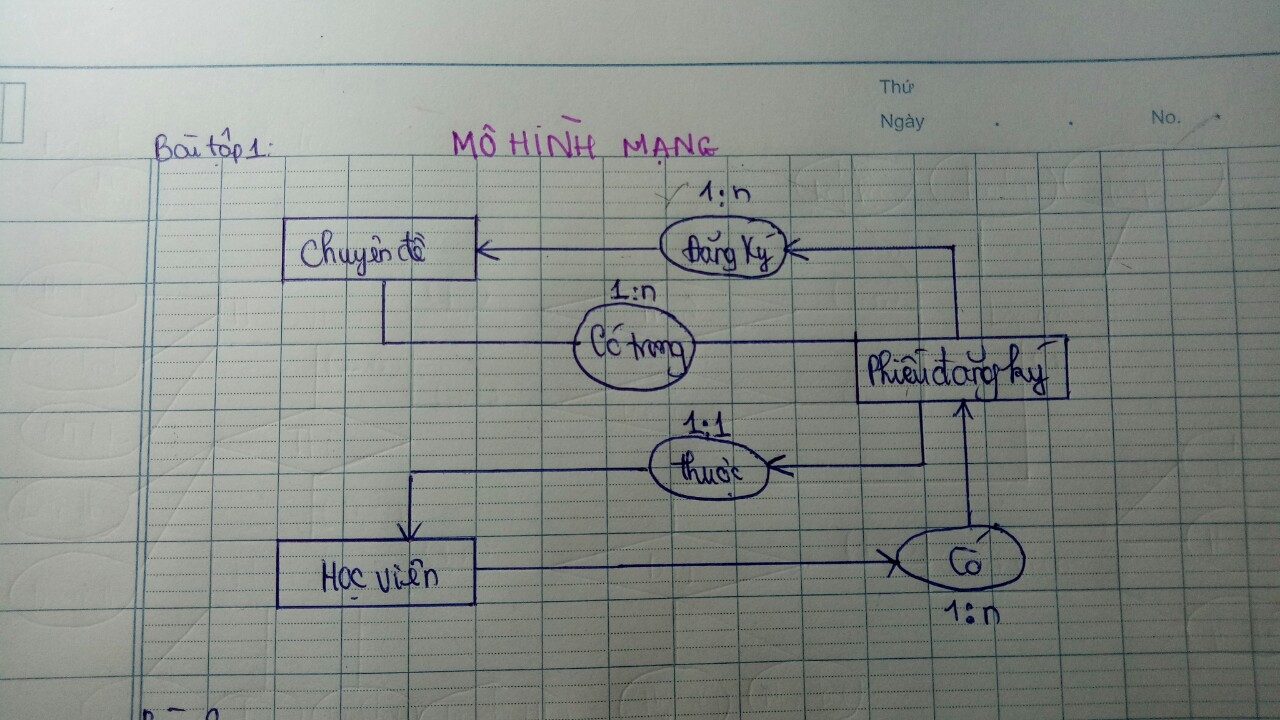 Thứ
Ngày . . No. .
Bài tập 1:
MÔ HÌNH MẠNG
1:n
Chuyên đề
Đăng Ký
1:n
Có trong
Phiếu đăng ký
1:1
thuộc
Học viên
Có
1:n